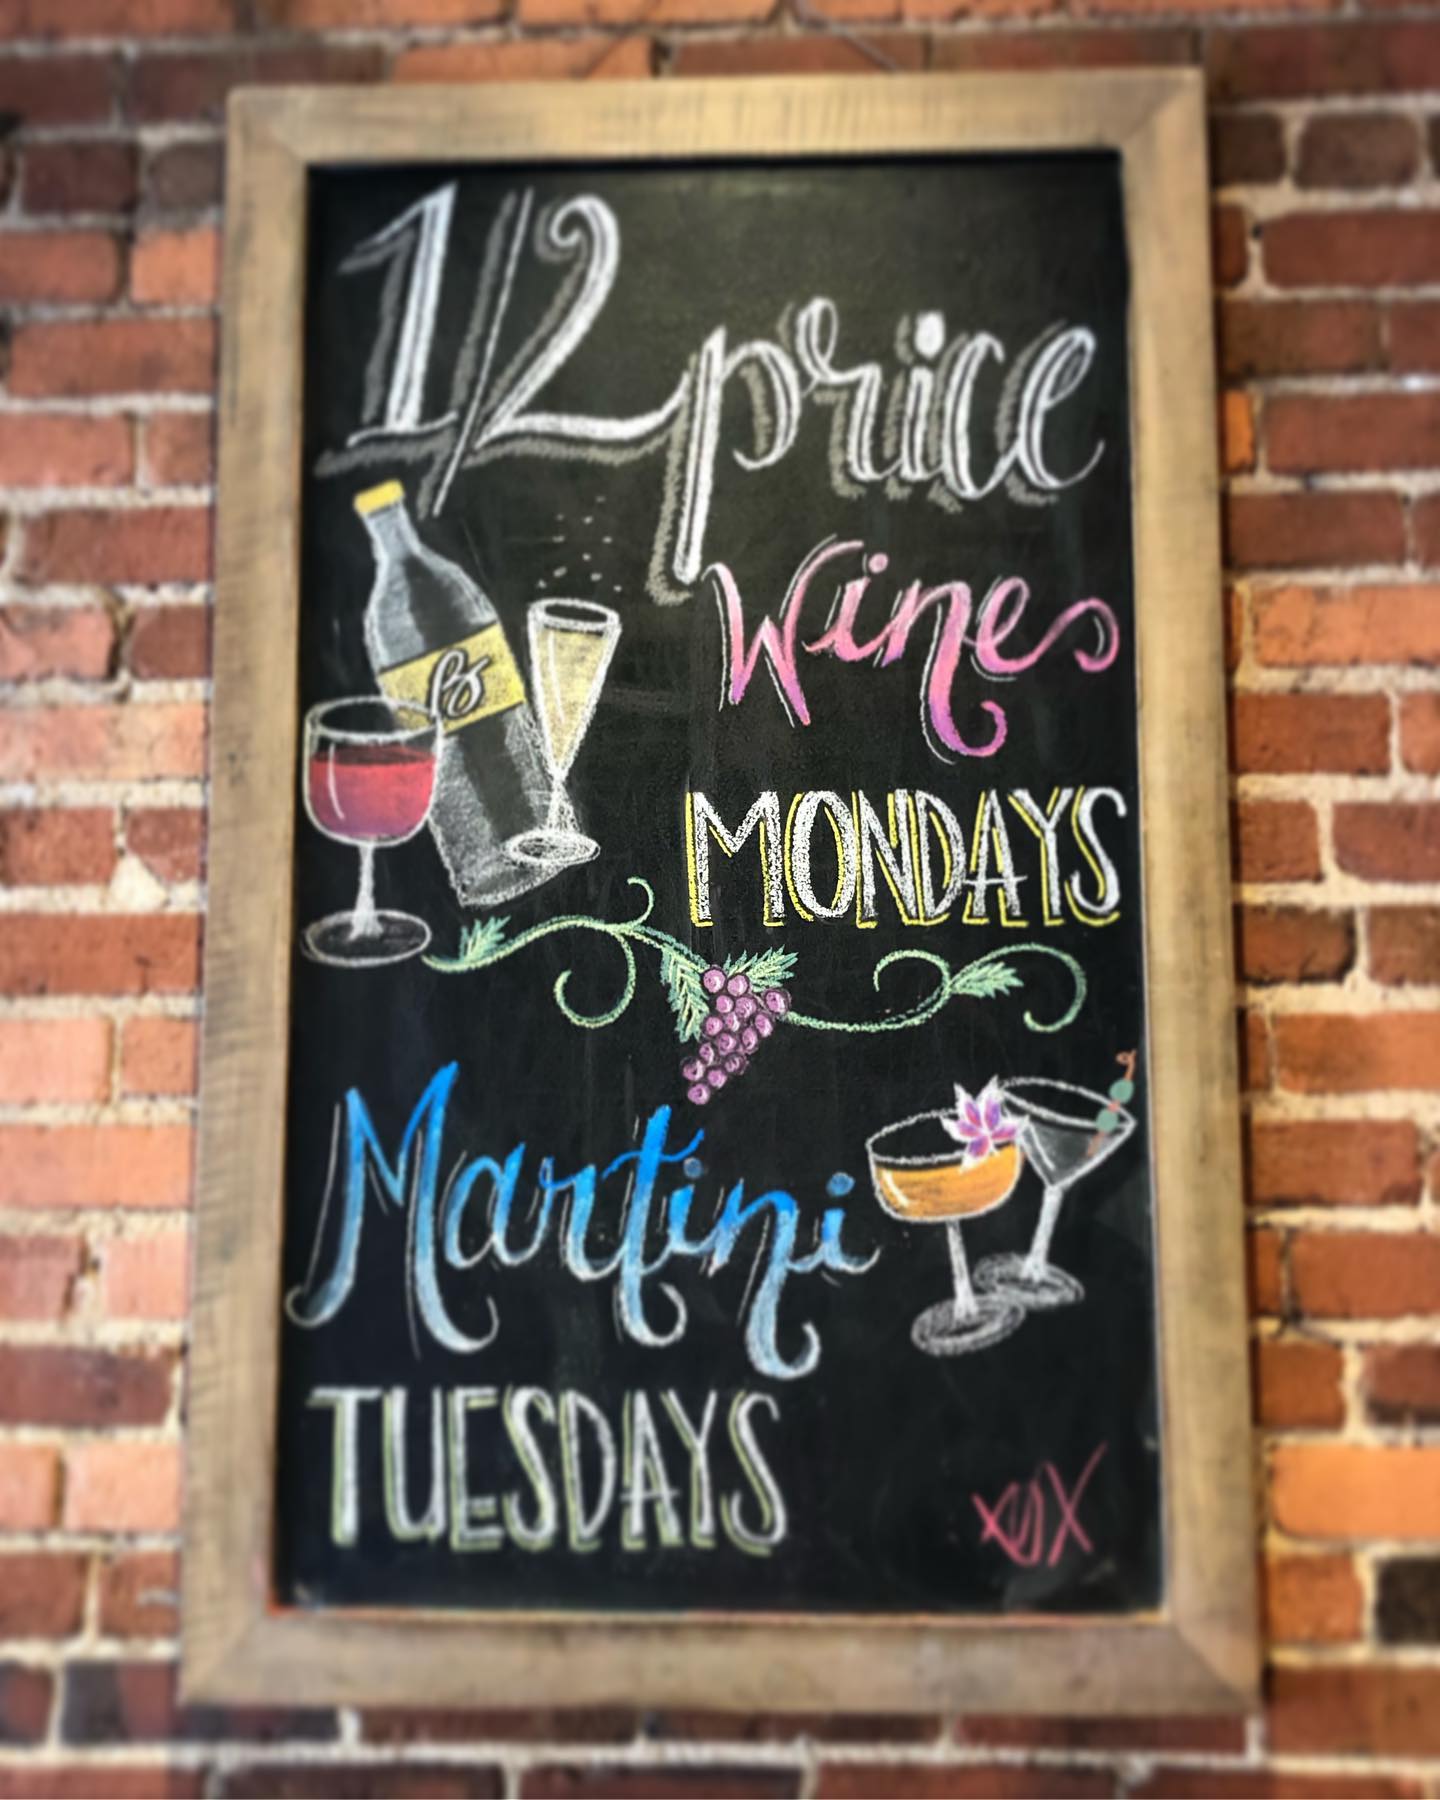 1/2 price
Wine
MONDAYS
Martini
TUESDAYS